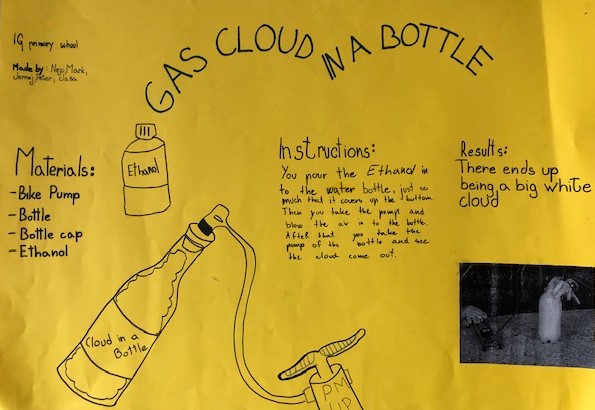 GAS CLOUD IN A BOTTLE
IG primary school
Made by: Nejc, Mark,
Jernej, Peter, Jaša
Materials:
- Bike Pump
- Bottle
- Bottle cap
- Ethanol
Ethanol
Cloud in a
Bottle
PM
UP
Instructions:
You pour the Ethanol in
to the water bottle, just so
much that it covers up the bottom.
Then you take the pump and
blow the air in to the bottle.
After that you take the
pump of the bottle and see
the cloud come out.
Results:
There ends up
being a big white
cloud